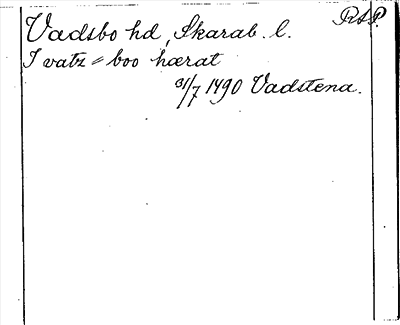 Vadsbo hd, Skarab. l. RAP.
I vatz = boo hærat
31/7 1490 Vadstena.